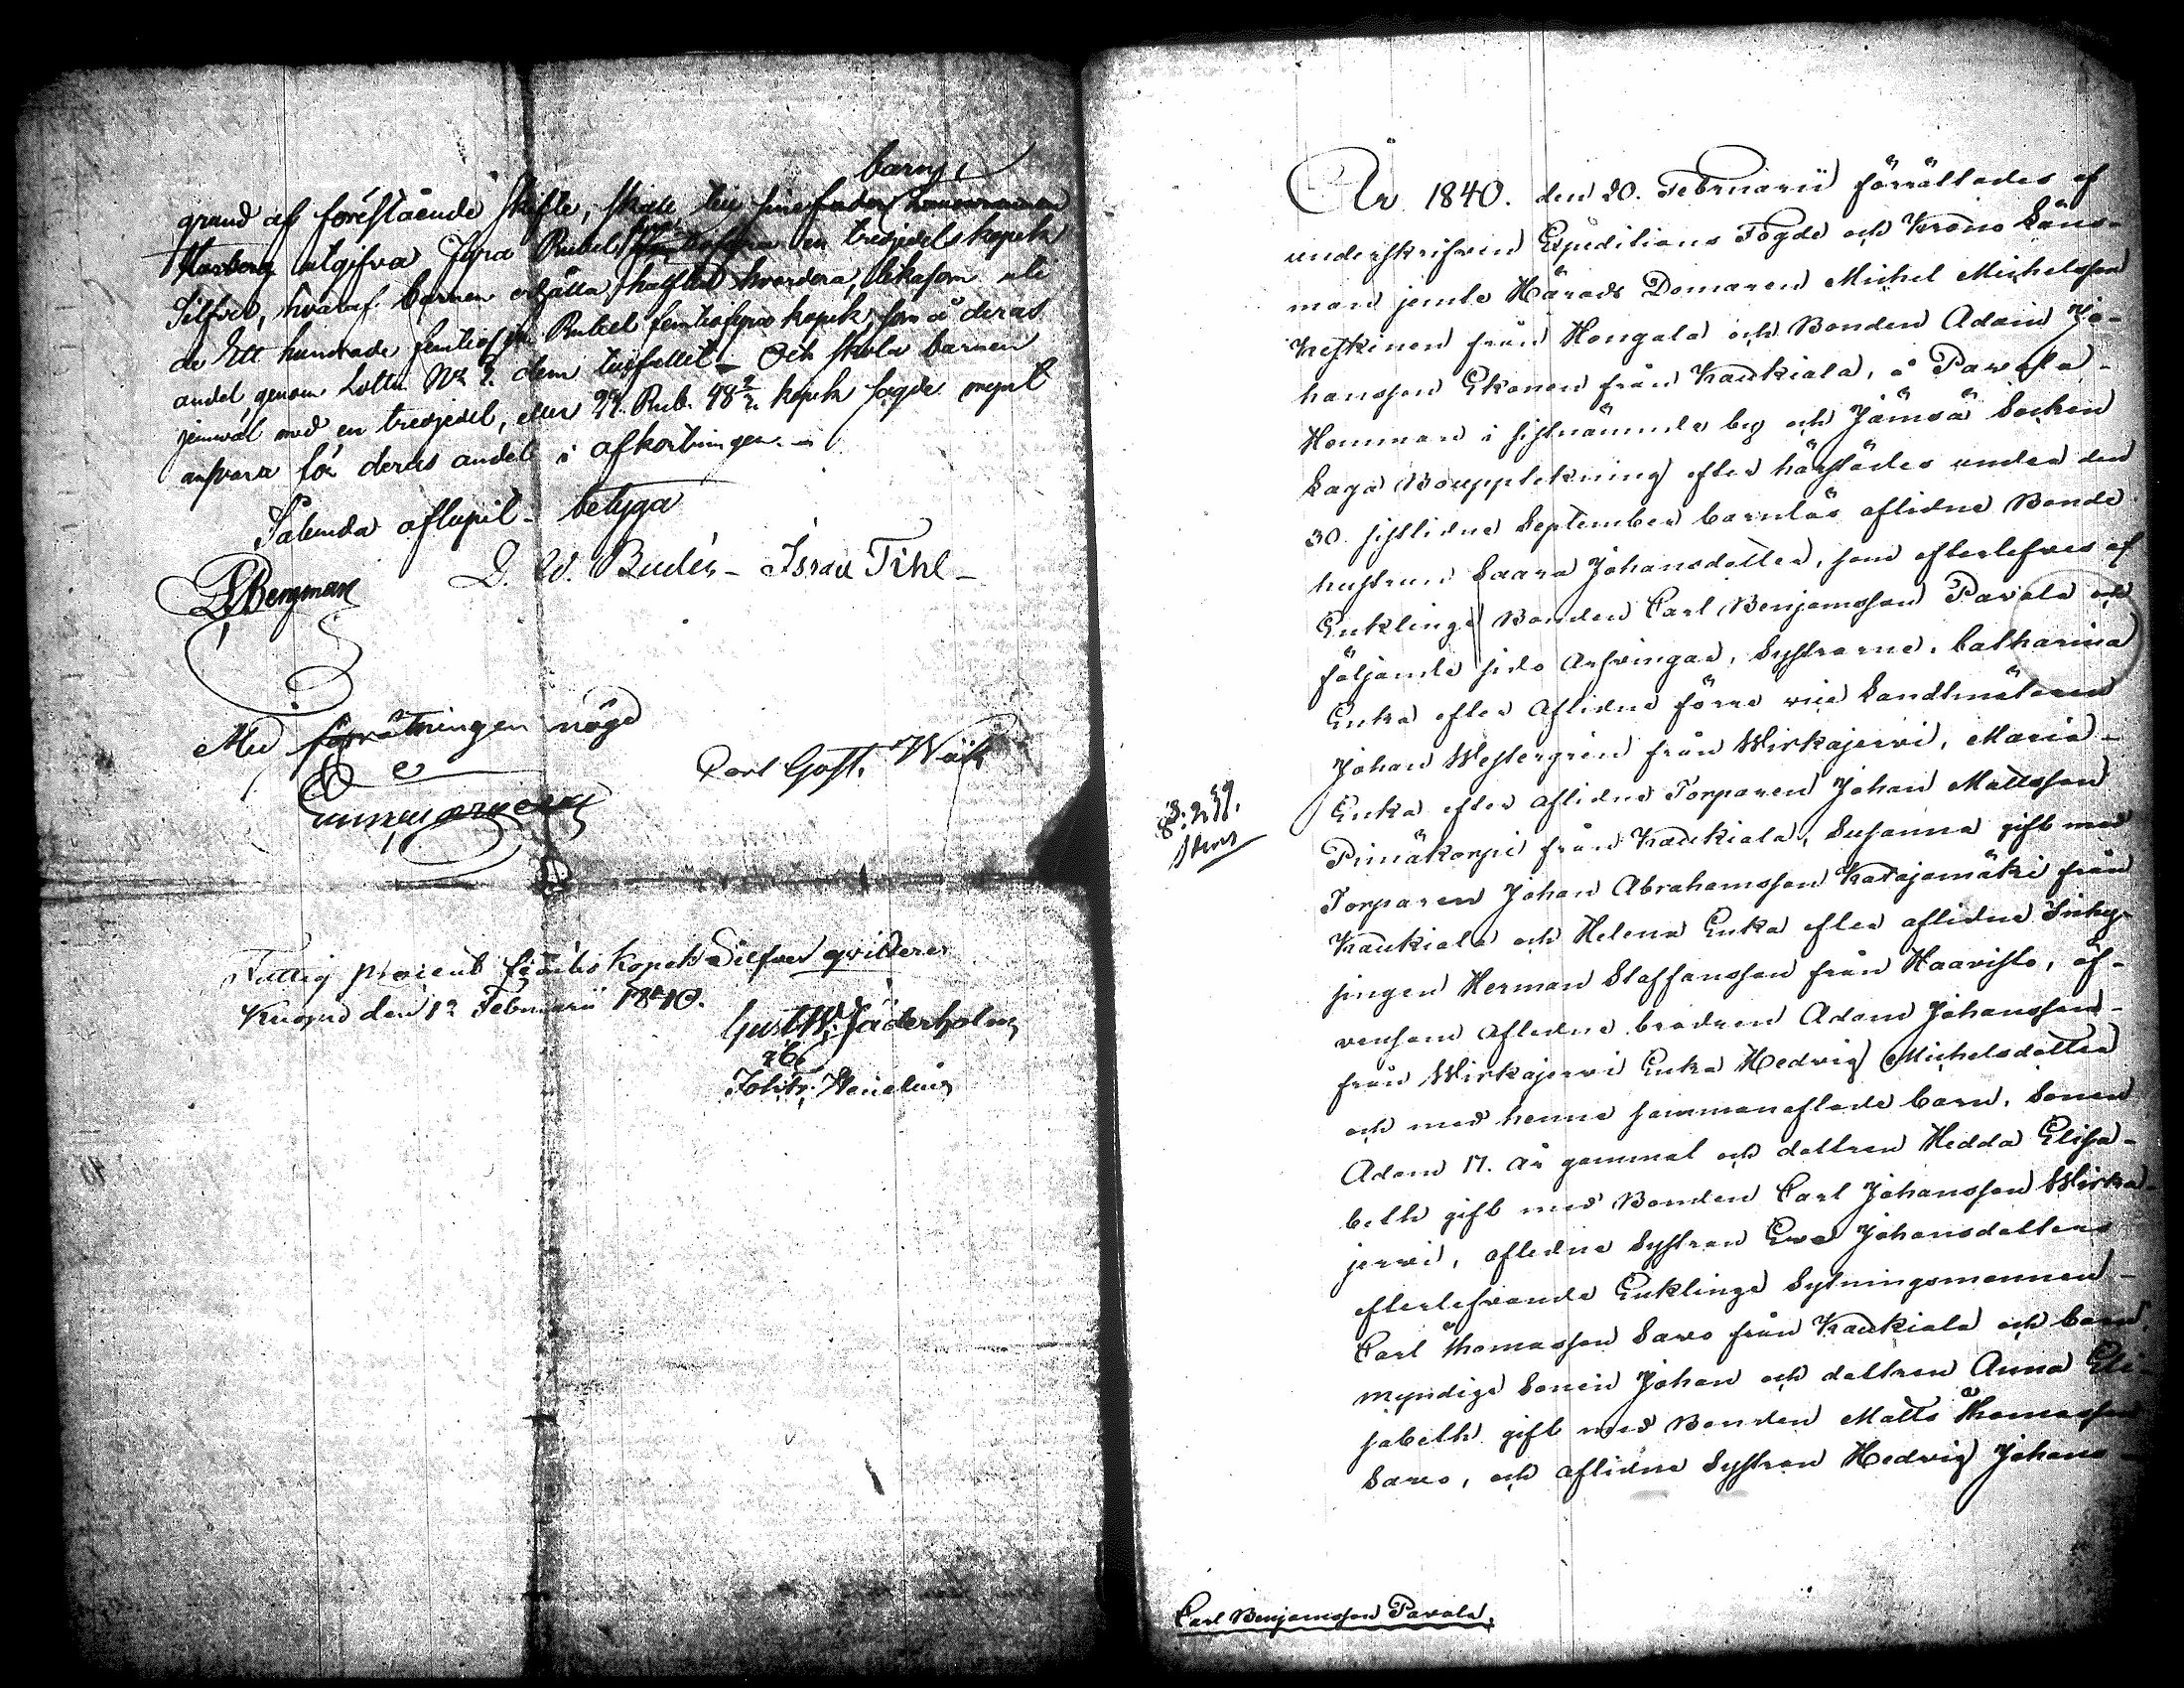 barn,
grund af förestående skifte, skall till sine
Harberg utgifva fyra Rubel en tredjedels kopek
Silfver, hvaraf barnen erhålla hälften hvardera, likasom uti
de Ett hundrade femtio Rubel femtiofyra kopek som å deras
andel, genom Lotten No 2. dem tillfallit_ Och skola barnen
jemväl med en tredjedel, eller 27. Rub. 48 2/7 kopek sagde mynt
ansvara för deras andel i afkortningen._
Sålunda aflupit_ betyga
Bergman
D. W. Budén_ Israel Tihl_
Med förrätningen nögd
Carl Gust. Wäk
Fattig procent fjorton Kopek Silfver qvitterer
Kuopio den 12 Februarii 1840.
Gust. W. Jäderholm
År 1840. den 20. Februarii förrättades af
underskrifven Expeditions Fogde och Krono Läns-
man jemte Härads Domaren Michel Michelsson
Keskinen från Hongola och Bonden Adam Jo-
hansson Ekonen från Kaukiala, å Pavola
Hemman i sistnämnde by och Jämsä Socken
Laga Bouppteckning efter härstädes under den
30. sistlidne September barnlös aflidne Bonde
hustrun Saara Johansdotter, som efterlefves af
Enklinge Bonden Carl Benjamsson Pavola och
följande sido Arfvingar, Systrarne, Catharina
Enka efter Aflidne förre vice Landtmätaren
Johan Westergrén från Wirkajervi, Maria_
Enka efter aflidne Torparen Johan Mattsson
Pimiäkorpi från Kaukiala, Susanna gift med
Torparen Johan Abrahamsson Katajamäki från
Kaukiala och Helena Enka efter aflidne Inhy-
singen Herman Staffansson från Haavisto, äf-
vensom Aflidne brodren Adam Johansson_
från Wirkajervi Enka Hedvig Michelsdotter
och med henne sammanaflade barn, Sonen
Adam 17. år gammal och dottren Hedda Elisa-
beth gift med Bonden Carl Johansson Wirka-
jervi, aflidne Systran Eva Johansdotters
efterlefvande Enklinge Sytningsmannen_
Carl Thomasson Savo från Kaukiala och barn,
myndige Sonen Johan och dottren Anna Eli-
sabeth gift med Bonden Matts Thomasson
Savo, och aflidne Systran Hedvig Johans-
S: 259.
Carl Benjamsson Pavola.